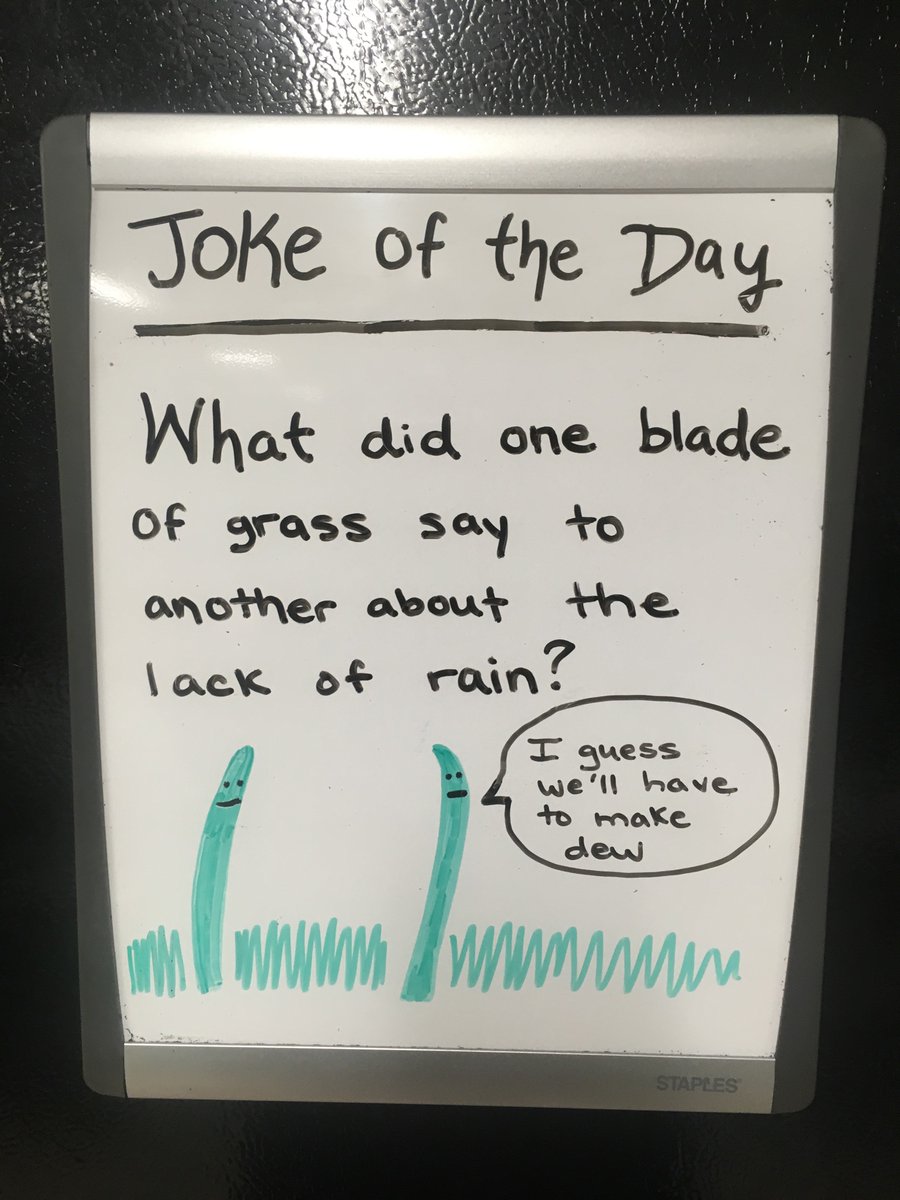 Joke of the Day
What did one blade
of grass say to
another about the
lack of rain?
I guess
we'll have
to make
dew
STAPLES